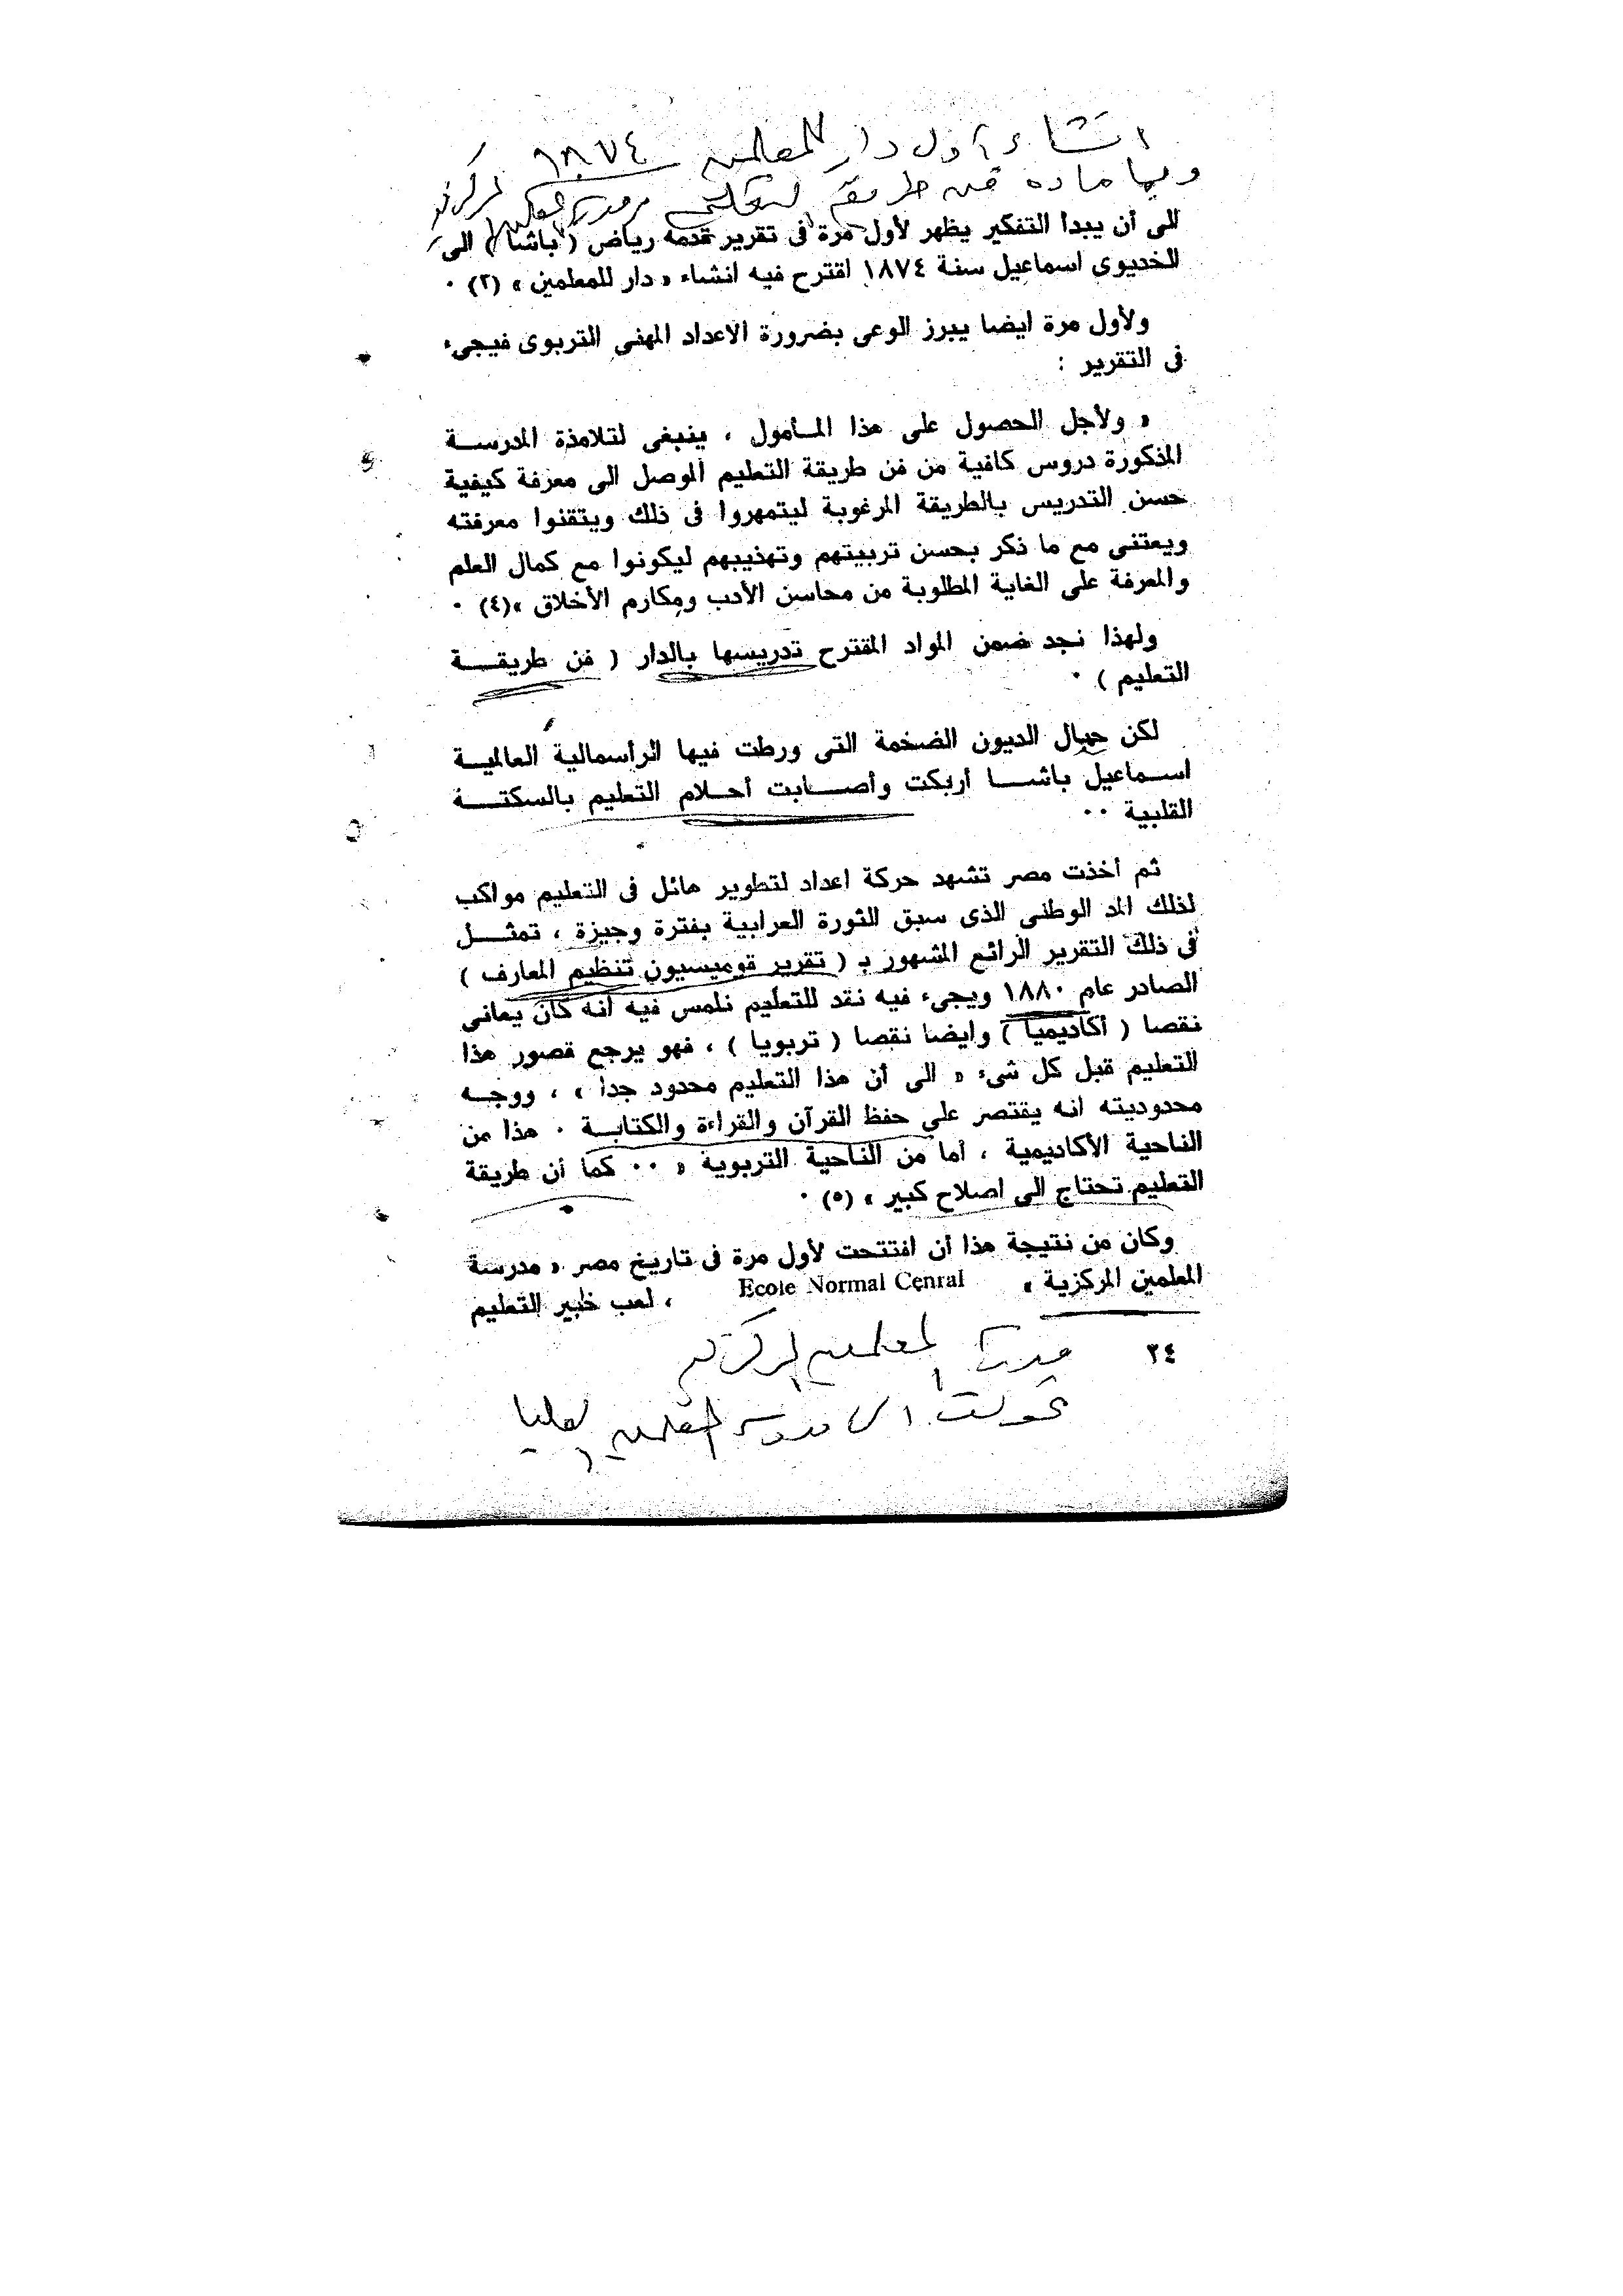 انشاء أول دار للمعلمين ١٨٧٤
وبها مادة فن طريقة التعليم مدرسة المعلمين المركزية
الى أن يبدأ التفكير يظهر لأول مرة فى تقرير قدمه رياض ( باشا ) الى
الخديوى اسماعيل سنة ١٨٧٤ اقترح فيه انشاء « دار للمعلمين » (٣) ٠
ولأول مرة ايضا يبرز الوعى بضرورة الاعداد المهنى التربوى فيجىء
فى التقرير :
« ولأجل الحصول على هذا المـأمول ، ينبغى لتلامذة المدرســة
المذكورة دروس كافية من فن طريقة التعليم الموصل الى معرفة كيفية
حسن التدريس بالطريقة المرغوبة ليتمهروا فى ذلك ويتقنوا معرفته
ويعتنى مع ما ذكر بحسن تربيتهم وتهذيبهم ليكونوا مع كمال العلم
والمعرفة على الغاية المطلوبة من محاسن الأدب ومكارم الأخلاق »(٤) ٠
ولهذا نجد ضمن المواد المقترح تدريسها بالدار ( فن طريقــة
التعليم ) ٠
لكن حبال الديون الضخمة التى ورطت فيها الرأسمالية العالميــة
اســماعيل باشــا أربكت وأصــابت أحــلام التعليم بالسكتــة
القلبية ٠٠
ثم أخذت مصر تشهد حركة اعداد لتطوير هائل فى التعليم مواكب
لذلك المد الوطنى الذى سبق الثورة العرابية بفترة وجيزة ، تمثــل
فى ذلك التقرير الرائع المشهور بـ ( تقرير قوميسيون تنظيم المعارف )
الصادر عام ١٨٨٠ ويجىء فيه نقد للتعليم نلمس فيه أنه كان يعانى
نقصا ( أكاديميا ) وايضا نقصا ( تربويا ) ، فهو يرجع قصور هذا
التعليم قبل كل شىء « الى أن هذا التعليم محدود جدا » ، ووجــه
محدوديته انه يقتصر على حفظ القرآن والقراءة والكتابــة ٠ هذا من
الناحية الأكاديمية ، أما من الناحية التربوية « ٠٠ كما أن طريقة
التعليم تحتاج الى اصلاح كبير » (٥) ٠
وكان من نتيجة هذا أن افتتحت لأول مرة فى تاريخ مصر « مدرسة
المعلمين المركزية » Ecole Normal Cenral ، لعب خبير التعليم
٢٤
مدرسة المعلمين المركزية
تحولت الى مدرسة المعلمين العليا